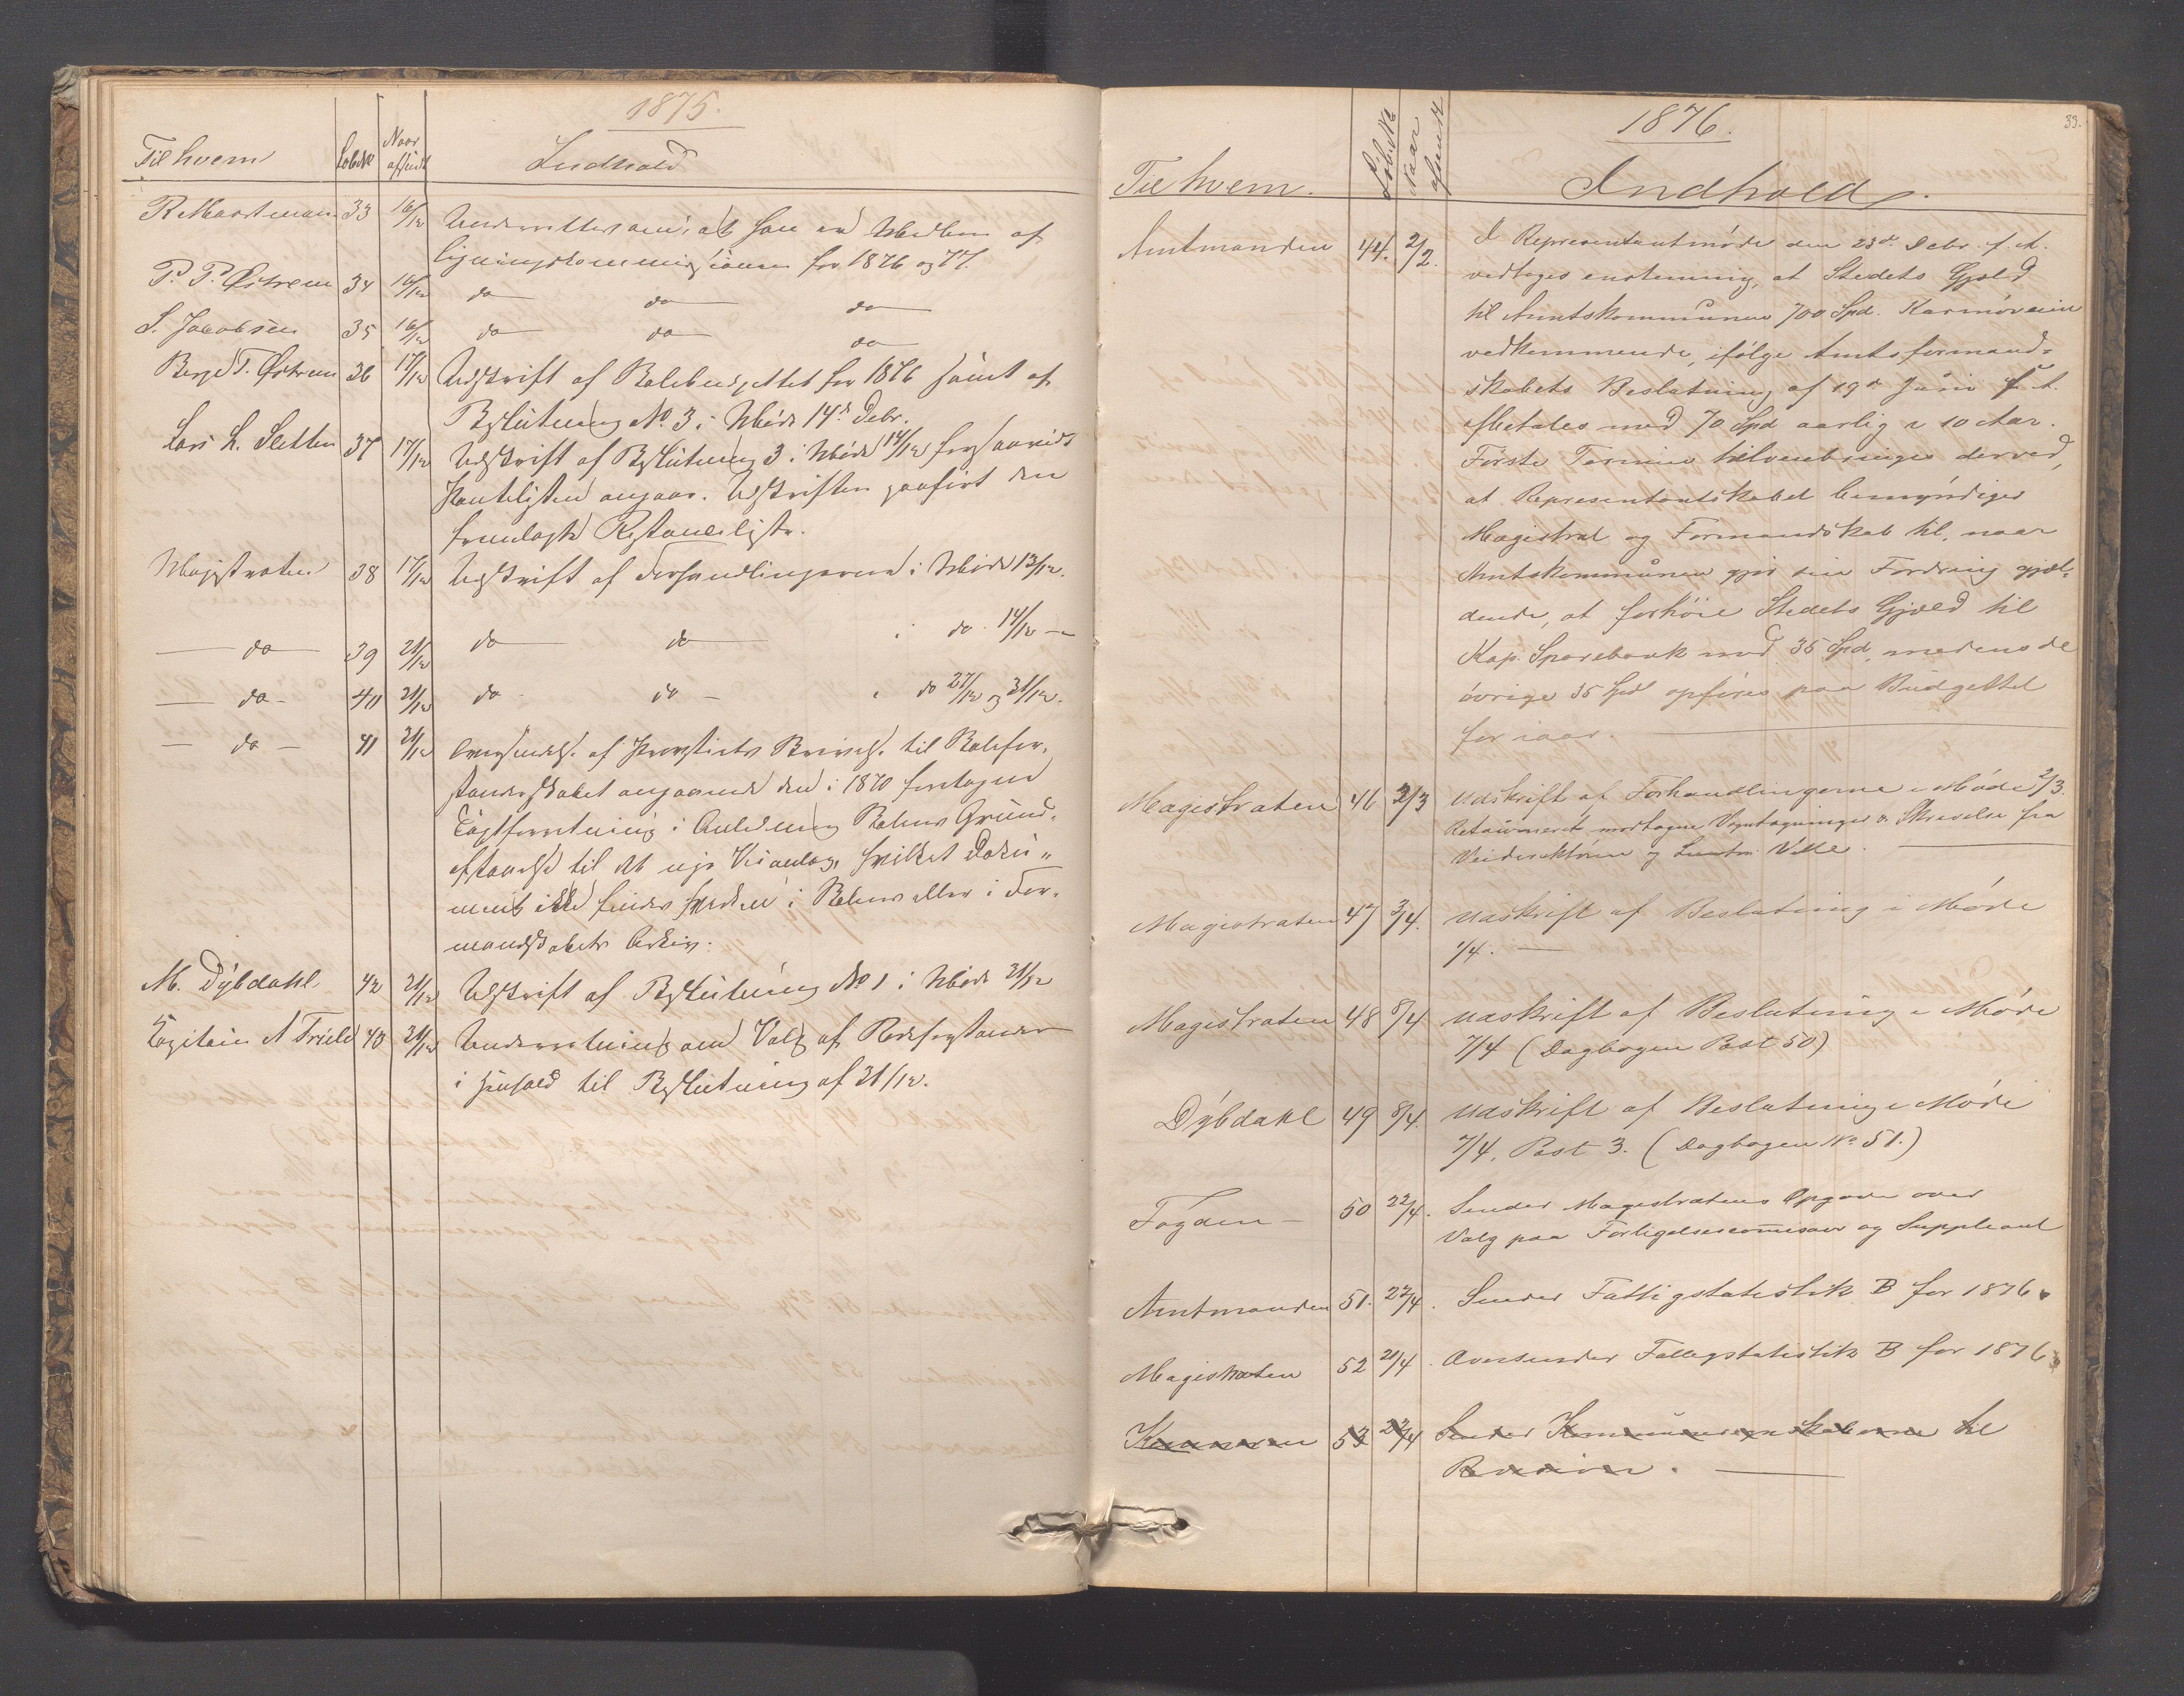 1875.
Til hvem Løb№ Naar afsendt Indhold
R. Maartmann 33 16/12 Underrettes om, at han er Medlem af
Ligningskommissionen for 1876 og 77.
P. P. Østrem 34 16/12 do do do
S. Jacobsen 35 16/12 do do do
Berge T. Østrem 36 17/12 Udskrift af Bybudgettet for 1876 samt af
Beslutning No. 3 i Møde 14de Debr.
Lars L. Sletten 37 17/12 Udskrift af Beslutning 3 i Møde 14/12 forsaavidt
Pantelisten angaar. Udskriften paaført den
fremlagte Restanceliste.
Magistraten 38 17/12 Udskrift af Forhandlingerne i Møde 13/12.
do 39 21/12 do do i do 14/12
do 40 31/12 do do i do 27/12 og 31/12.
do 41 31/12 Oversendes af Provstiets Skrivelse til
angaaende den i 1870 foretagne
i Anledning Grund-
afstaaelse til det nye hvilket Doku-
ment ikke findes hverken i eller i For-
mandskabets Arkiv.
M. Dybdahl 42 31/12 Udskrift af Beslutning No 1 i Møde 31/12
Captain A Friele 43 31/12 Underretning om Valg af
i Henhold til Beslutning af 31/12.
33.
1876.
Til hvem. Løb.№ Naar afsendt Indhold.
Amtmanden 44. 2/2. I Representantmøde den 23de Debr. f. A.
vedtoges enstemmig, at Stedets Gjeld
til Amtskommunen 700 Spd. Karmøveien
vedkommende, ifølge Amtsformand-
skabets Beslutning af 19de Juni f. A.
afbetales med 70 Spd aarlig i 10 Aar.
Første Termin tilveiebringes derved,
at Representantskabet bemyndiger
Magistrat og Formandskab til, naar
Amtskommunen gjør sin Fordring gjæl-
dende, at forhøie Stedets Gjeld til
Kop. Sparebank med 35 Spd, medens de
øvrige 35 Spd opføres paa Budgettet
for iaar.
Magistraten 46 3/3 Udskrift af Forhandlingerne i Møde 2/3.
Retourneret modtagne Vegtegninger & Skrivelse fra
Veidirektøren og Velle.
Magistraten 47 3/4. Udskrift af Beslutning i Møde
1/4.
Magistraten 48 8/4 Udskrift af Beslutning i Møde
7/4 (Dagbogen Post 50)
Dybdahl 49 8/4. Udskrift af Beslutning i Møde
7/4, Post 3. (Dagbogen No. 51.)
Fogden 50 22/4. Sender Magistratens Opgave over
Valg paa Forligelsescomisær og Suppleant
Amtmanden 51. 22/4. Sender Fattigstatistik B for 1876
Magistraten 52 21/4. Oversender Fattigstatistik B for 1876
53 22/4 Sender Kommuneregnskaberne til
Revision.